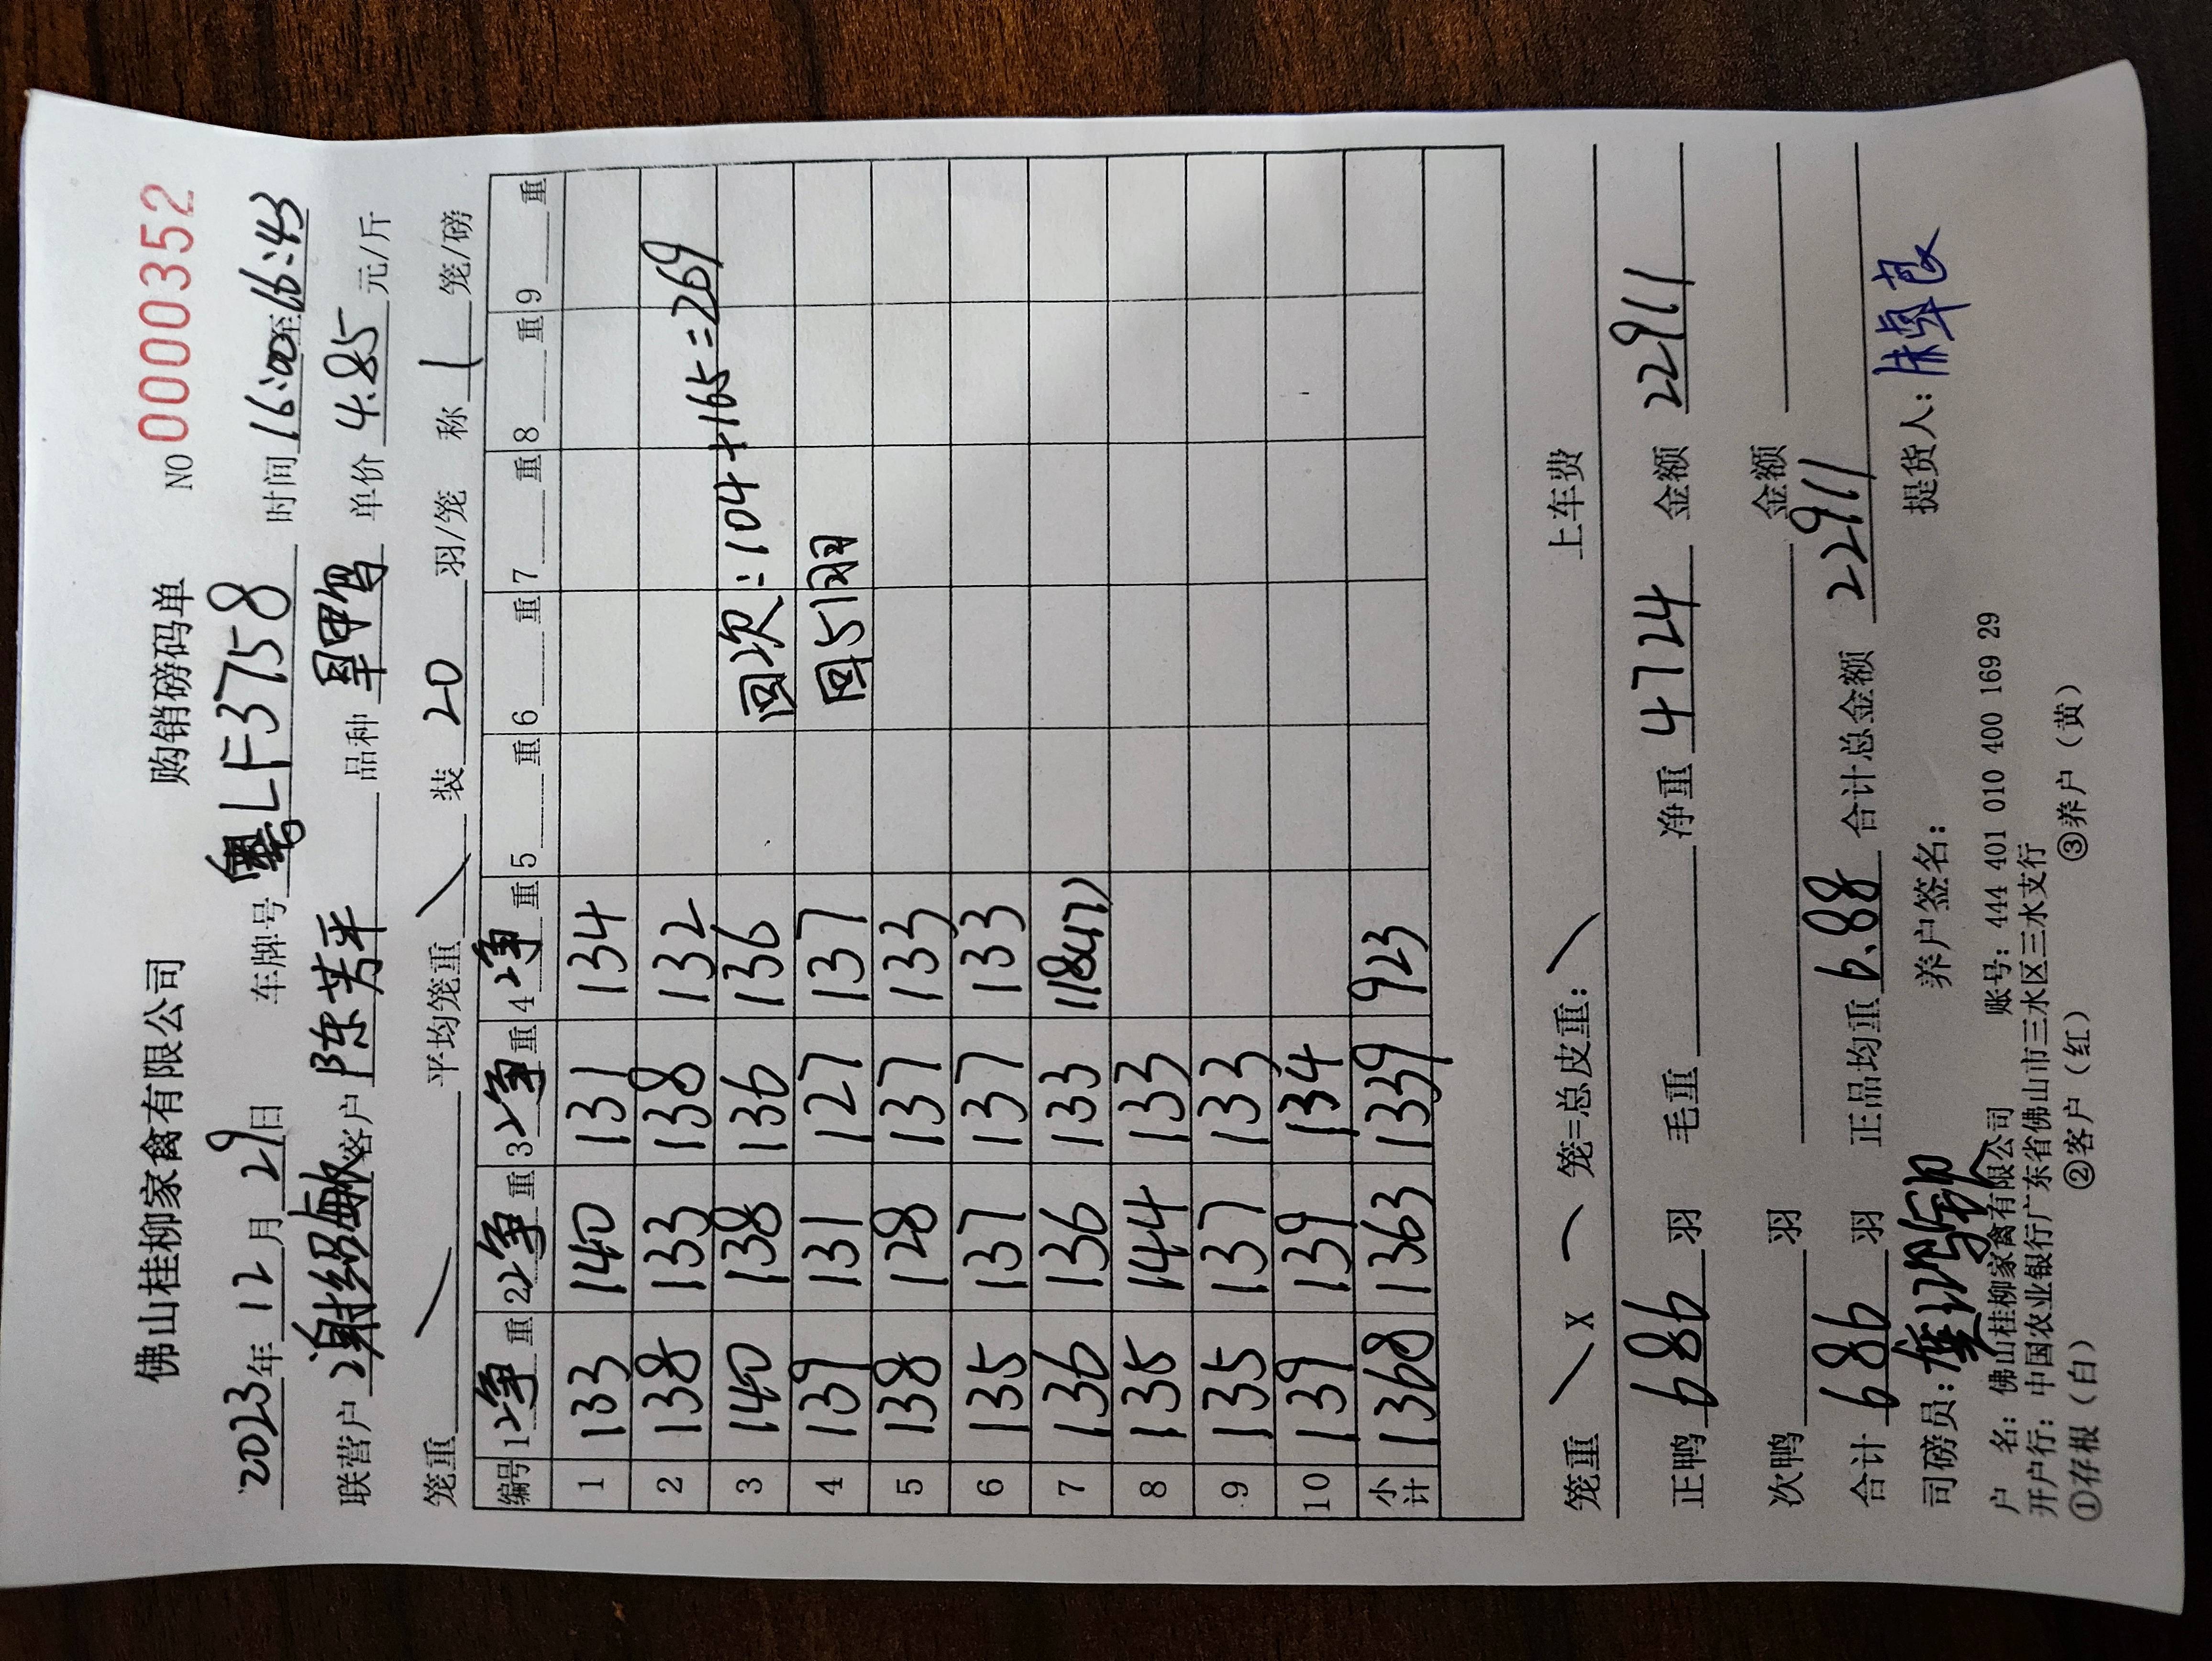 佛山桂柳家禽有限公司 购销磅码单 NO 0000352
2023年12月29日 车牌号 粤LF3758 时间 16:00至16:43
联营户 谢绍敏 客户 陈芳平 品种 单价 4.85 元/斤
笼重 平均笼重 装 20 羽/笼 称 1 笼/磅
编号 1净重 2净重 3净重 4净重 5 重 6 重 7 重 8 重 9 重
1 133 140 131 134
2 138 133 138 132
3 140 138 136 136 回次:104+165=269
4 139 131 127 137 回51羽
5 138 128 137 133
6 135 137 137 133
7 136 136 133 118(17)
8 135 144 133
9 135 137 133
10 139 139 134
小计 1368 1363 1339 923
笼重 X 笼=总皮重: 上车费
正鸭 686 羽 毛重 净重 4724 金额 22911
次鸭 羽 金额
合计 686 羽 正品均重 6.88 合计总金额 22911
司磅员: 养户签名: 提货人:
户 名: 佛山桂柳家禽有限公司 账号: 444 401 010 400 169 29
开户行: 中国农业银行广东省佛山市三水区三水支行
①存根（白） ②客户（红） ③养户（黄）